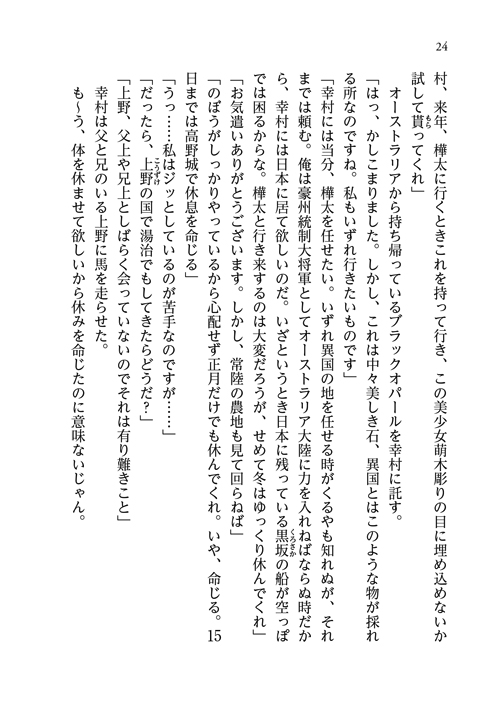 24
村、来年、樺太に行くときこれを持って行き、この美少女萌木彫りの目に埋め込めないか
試して貰ってくれ」
オーストラリアから持ち帰っているブラックオパールを幸村に託す。
「はっ、かしこまりました。しかし、これは中々美しき石、異国とはこのような物が採れ
る所なのですね。私もいずれ行きたいものです」
「幸村には当分、樺太を任せたい。いずれ異国の地を任せる時がくるやも知れぬが、それ
までは頼む。俺は豪州統制大将軍としてオーストラリア大陸に力を入れねばならぬ時だか
ら、幸村には日本に居て欲しいのだ。いざというとき日本に残っている黒坂の船が空っぽ
では困るからな。樺太と行き来するのは大変だろうが、せめて冬はゆっくり休んでくれ」
「お気遣いありがとうございます。しかし、常陸の農地も見て回らねば」
「のぼうがしっかりやっているから心配せず正月だけでも休んでくれ。いや、命じる。15
日までは高野城で休息を命じる」
「うっ……私はジッとしているのが苦手なのですが……」
「だったら、上野の国で湯治でもしてきたらどうだ？」
「上野、父上や兄上としばらく会っていないのでそれは有り難きこと」
幸村は父と兄のいる上野に馬を走らせた。
も～う、体を休ませて欲しいから休みを命じたのに意味ないじゃん。